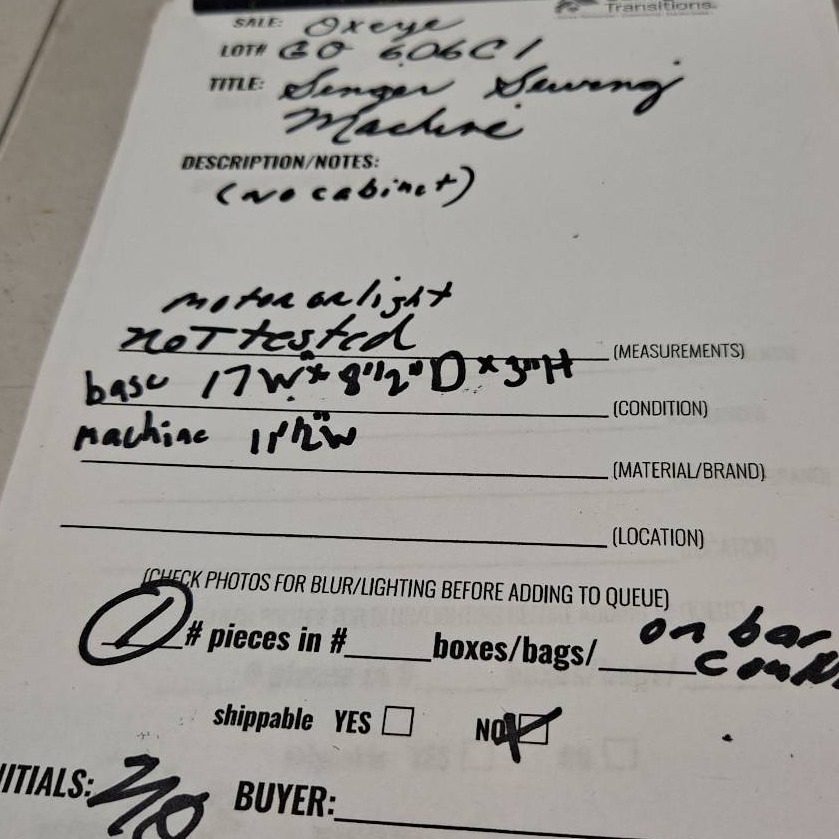 Transitions.
SALE: Oxeye
LOT# GO 606C1
TITLE: Singer Sewing
Machine
DESCRIPTION/NOTES:
(no cabinet)
motor or light
NOT tested
(MEASUREMENTS)
base 17W x 8"1/2" D x 3"H
(CONDITION)
machine 11"1/2"W
(MATERIAL/BRAND)
(LOCATION)
(CHECK PHOTOS FOR BLUR/LIGHTING BEFORE ADDING TO QUEUE)
1 # pieces in #____ boxes/bags/____ on bar
shippable YES ☐ NO ☒
ITIALS: BUYER: